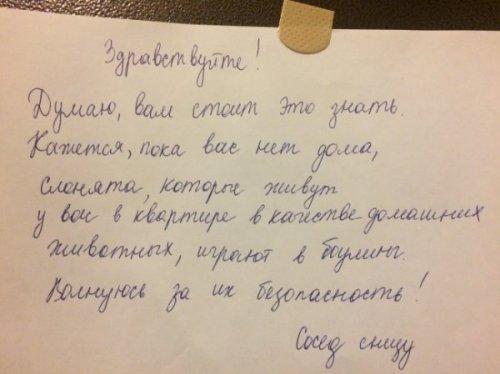 Здравствуйте!
Думаю, вам стоит это знать.
Кажется, пока вас нет дома,
слонята, которые живут
у вас в квартире в качестве домашних
животных, играют в боулинг.
Волнуюсь за их безопасность!
Сосед снизу